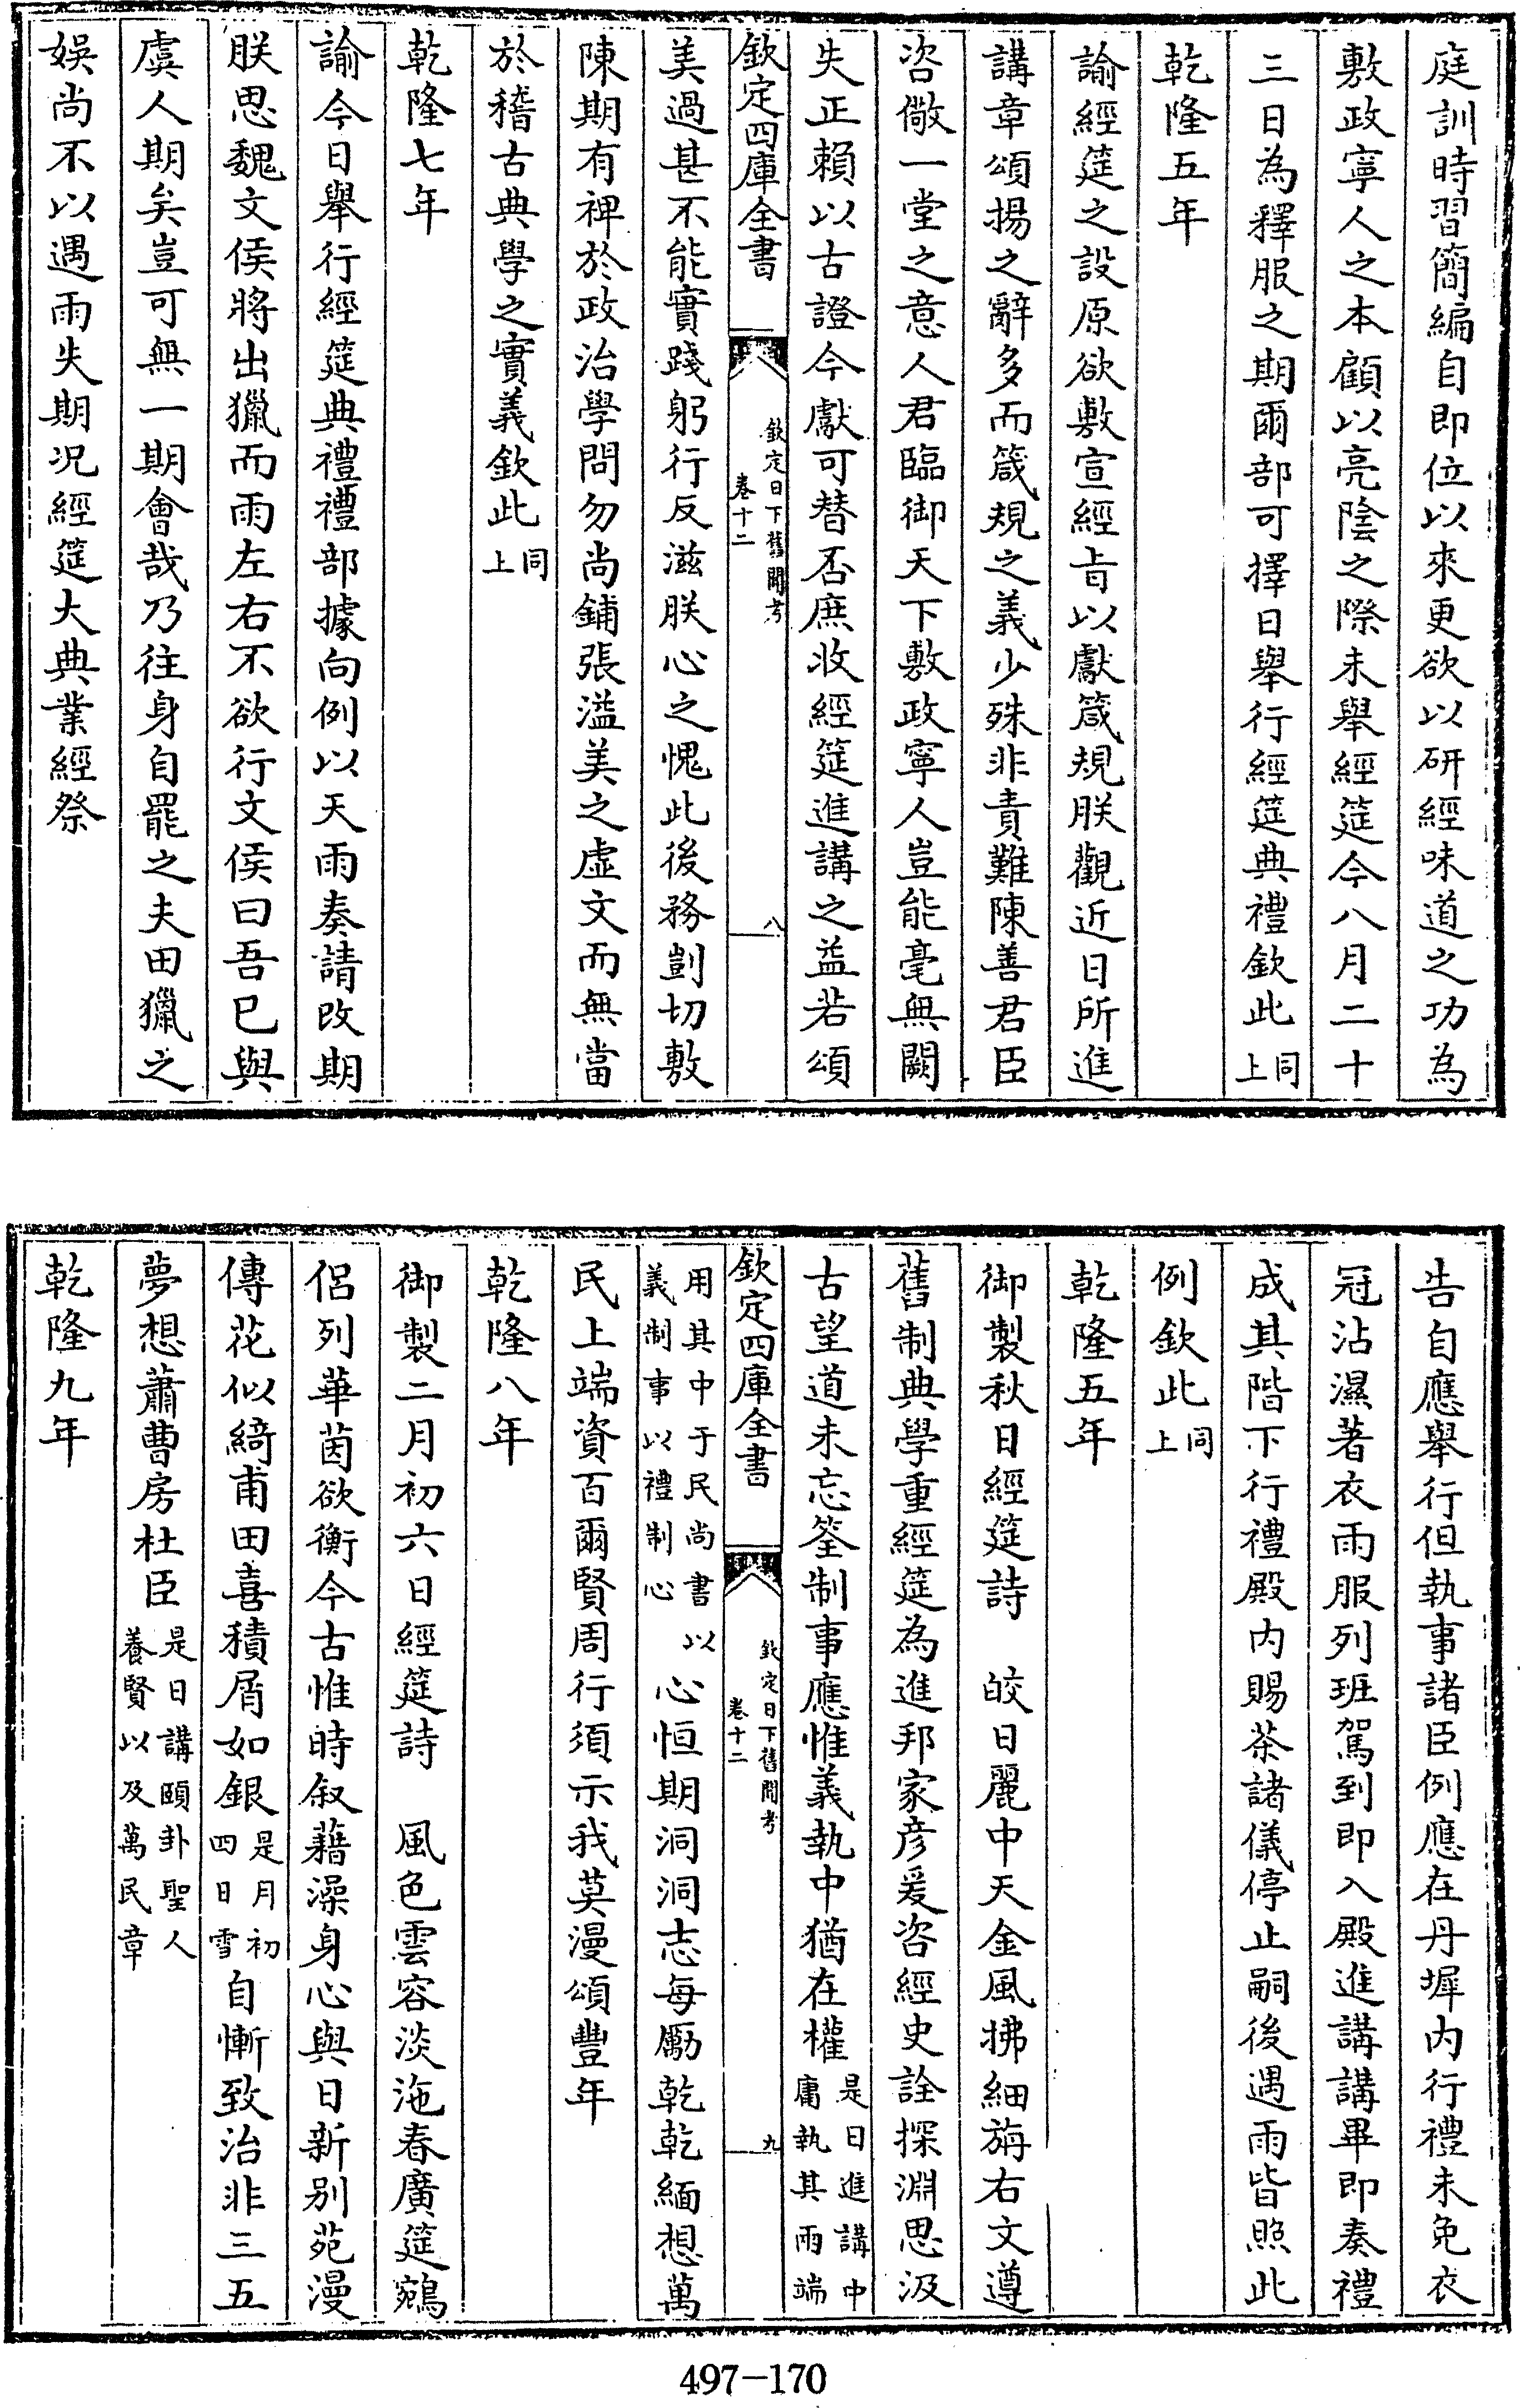 庭訓時習簡編自即位以來更欲以研經味道之功為
敷政寧人之本顧以亮陰之際未舉經筵今八月二十
三日為釋服之期爾部可擇日舉行經筵典禮欽此同上
乾隆五年
諭經筵之設原欲敷宣經旨以獻箴規朕觀近日所進
講章頌揚之辭多而箴規之義少殊非責難陳善君臣
咨儆一堂之意人君臨御天下敷政寧人豈能毫無闕
失正賴以古證今獻可替否庶收經筵進講之益若頌
欽定四庫全書
欽定日下舊聞考
卷十二
八
美過甚不能實踐躬行反滋朕心之愧此後務剴切敷
陳期有裨於政治學問勿尚鋪張溢美之虛文而無當
於稽古典學之實義欽此同上
乾隆七年
諭今日舉行經筵典禮禮部據向例以天雨奏請改期
朕思魏文侯將出獵而雨左右不欲行文侯曰吾已與
虞人期矣豈可無一期會哉乃往身自罷之夫田獵之
娛尚不以遇雨失期况經筵大典業經祭
告自應舉行但執事諸臣例應在丹墀内行禮未免衣
冠沾濕著衣雨服列班駕到即入殿進講講畢即奏禮
成其階下行禮殿内賜茶諸儀停止嗣後遇雨皆照此
例欽此同上
乾隆五年
御製秋日經筵詩　皎日麗中天金風拂細旃右文遵
舊制典學重經筵為進邦家彦爰咨經史詮探淵思汲
古望道未忘筌制事應惟義執中猶在權是日進講中庸執其兩端
欽定四庫全書
欽定日下舊聞考
卷十二
九
用其中于民尚書以義制事以禮制心心恒期洞洞志每勵乾乾緬想萬
民上端資百爾賢周行須示我莫漫頌豐年
乾隆八年
御製二月初六日經筵詩　風色雲容淡沲春廣筵鵷
侣列華茵欲衡今古惟時叙藉澡身心與日新别苑漫
傳花似綺甫田喜積屑如銀是月初四日雪自慚致治非三五
夢想蕭曹房杜臣是日講頤卦聖人養賢以及萬民章
乾隆九年
497-170